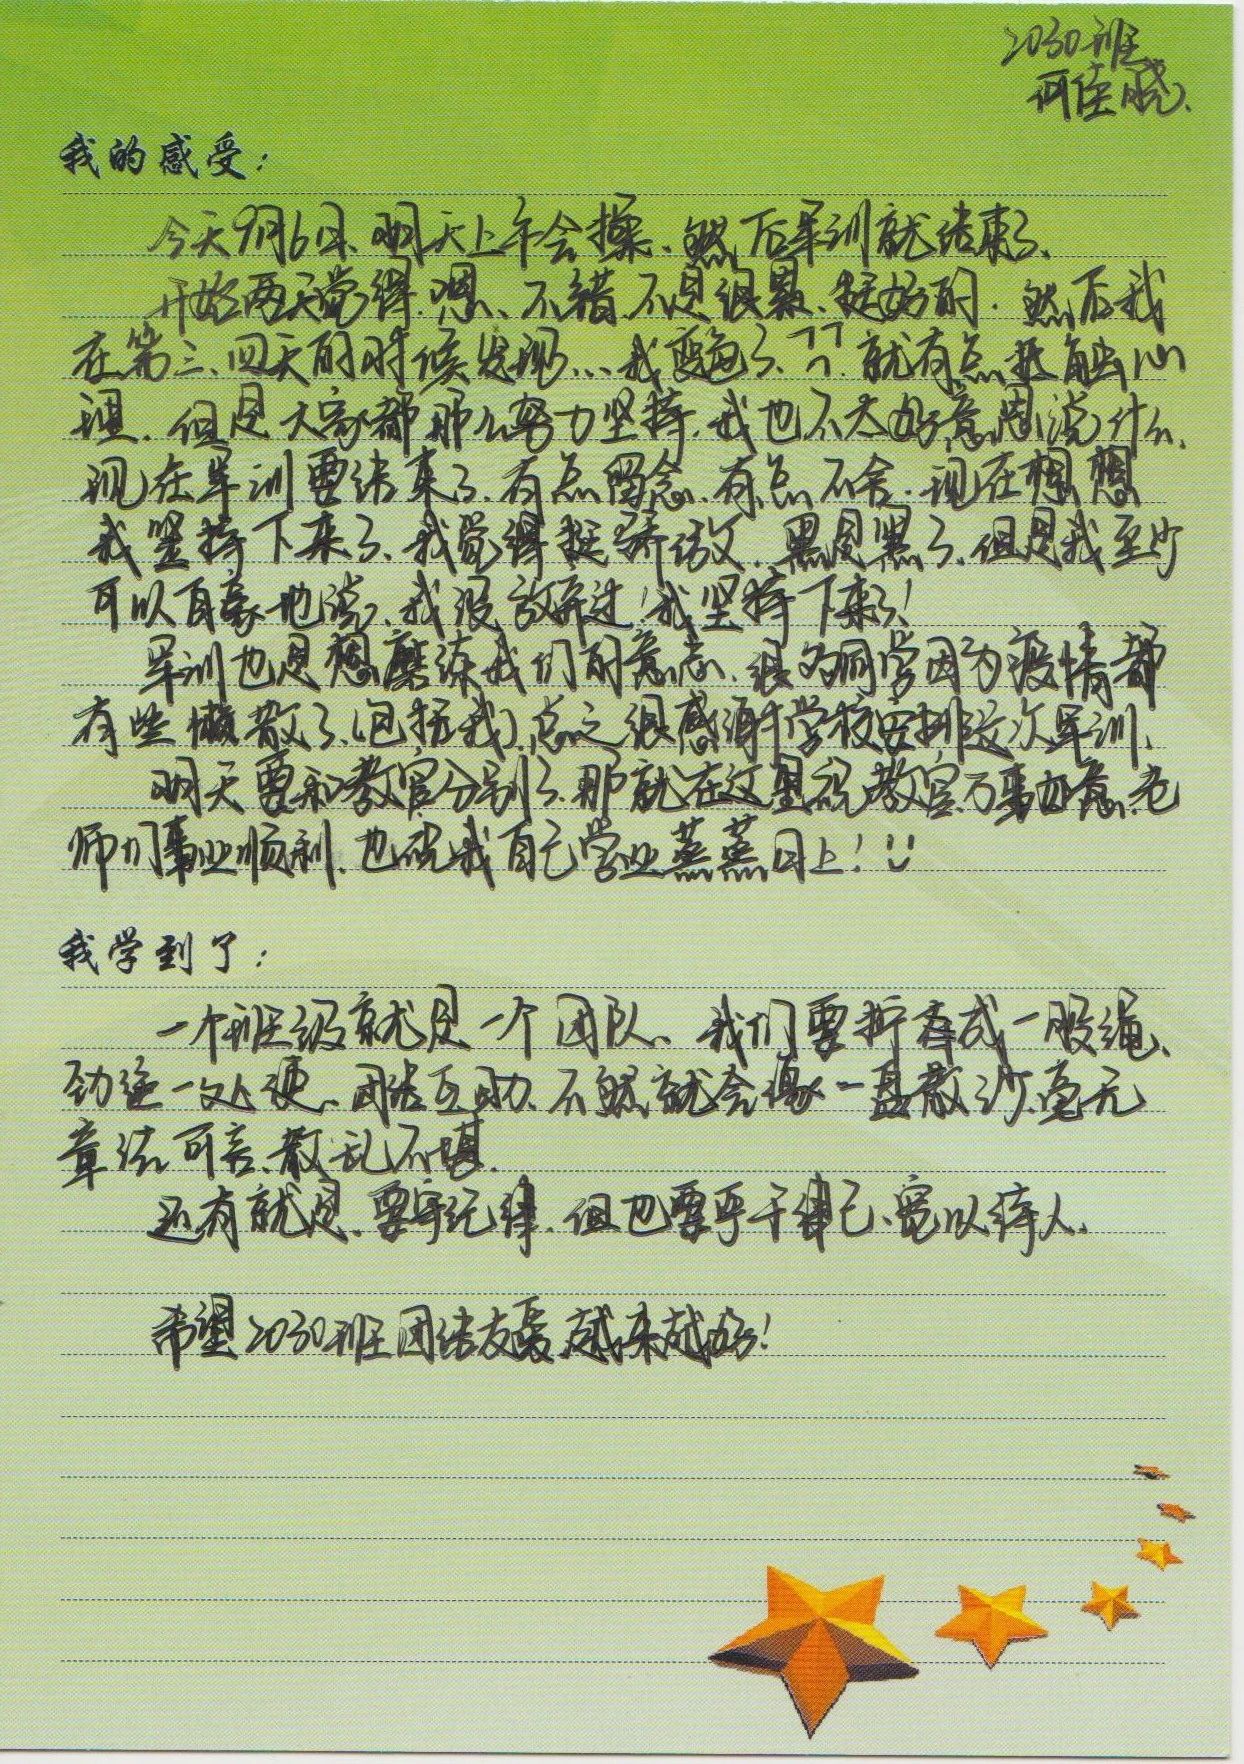 2030班
何佳晓
我的感受：
今天9月6日、明天上午会操、然后军训就结束了、
开始两天觉得、嗯、不错、不是很累、挺好的. 然后我
在第三、四天的时候发现...我变色了、TT. 就有点抵触心
理. 但是大家都那么努力坚持, 我也不太好意思说什么.
现在军训要结束了. 有点留念、有点不舍. 现在想想
我坚持下来了、我觉得挺骄傲. 黑是黑了、但是我至少
可以自豪地说、我没放弃过! 我坚持下来了!
军训也是想磨练我们的意志、很多同学因为疫情都
有些懒散了、(包括我)、总之很感谢学校安排这次军训、
明天要和教官分别了. 那就在这里祝教官万事如意、老
师们事业顺利、也祝我自己学业蒸蒸日上!
我学到了：
一个班级就是一个团队、我们要拧成一股绳、
劲往一处使、团结互助、不然就会像一盘散沙、毫无
章法可言、散乱不堪.
还有就是、要守纪律、但也要严于律己、宽以待人.
希望2030班团结友爱、越来越好!